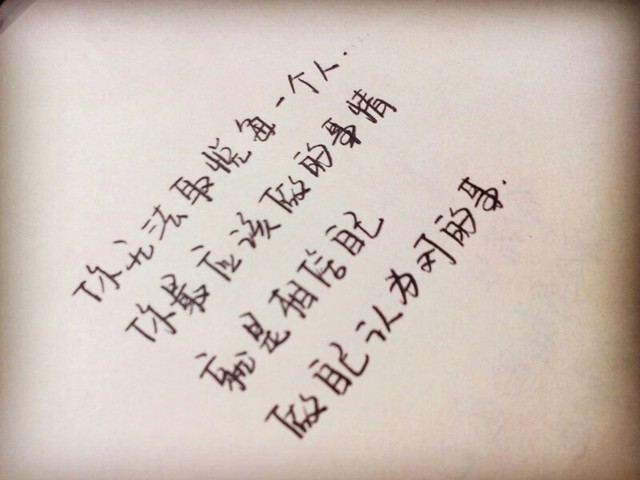 你无法取悦每一个人.
你最应该做的事情
就是相信自己
做自己认为对的事.